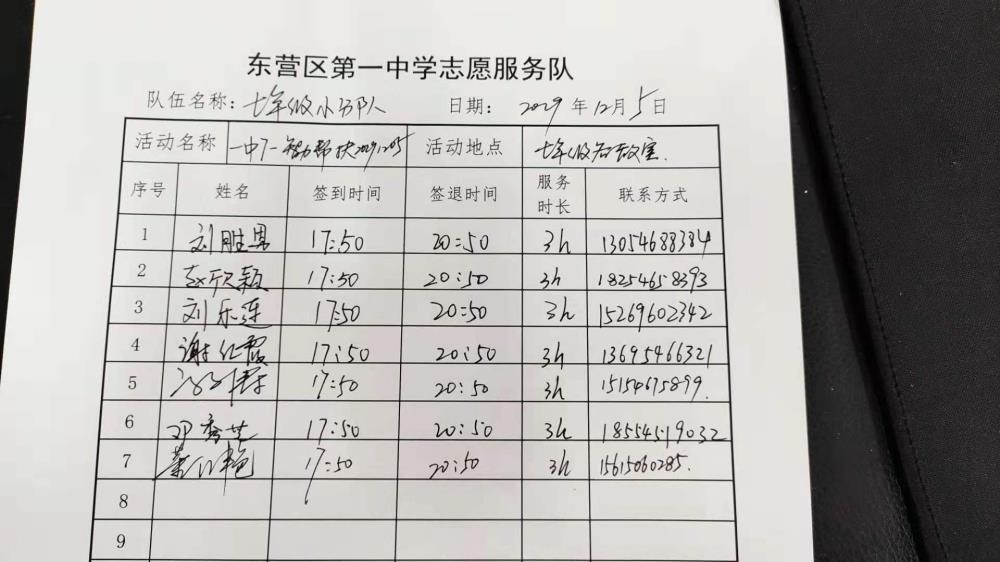 东营区第一中学志愿服务队
队伍名称：七年级小分队 日期：2029年12月5日
活动名称 一中7一 帮扶20291205 活动地点 七年级各教室.
序号 姓名 签到时间 签退时间 服务时长 联系方式
1 刘胜男 17:50 20:50 3h 13054688384
2 赵欣颖 17:50 20:50 3h 18254658393
3 刘乐莲 17:50 20:50 3h 15269602342
4 谢仁霞 17:50 20:50 3h 13695466321
5 17:50 20:50 3h 15154675899.
6 邓秀芝 17:50 20:50 3h 18554519032
7 艳 17:50 20:50 3h 15615060285.
8
9